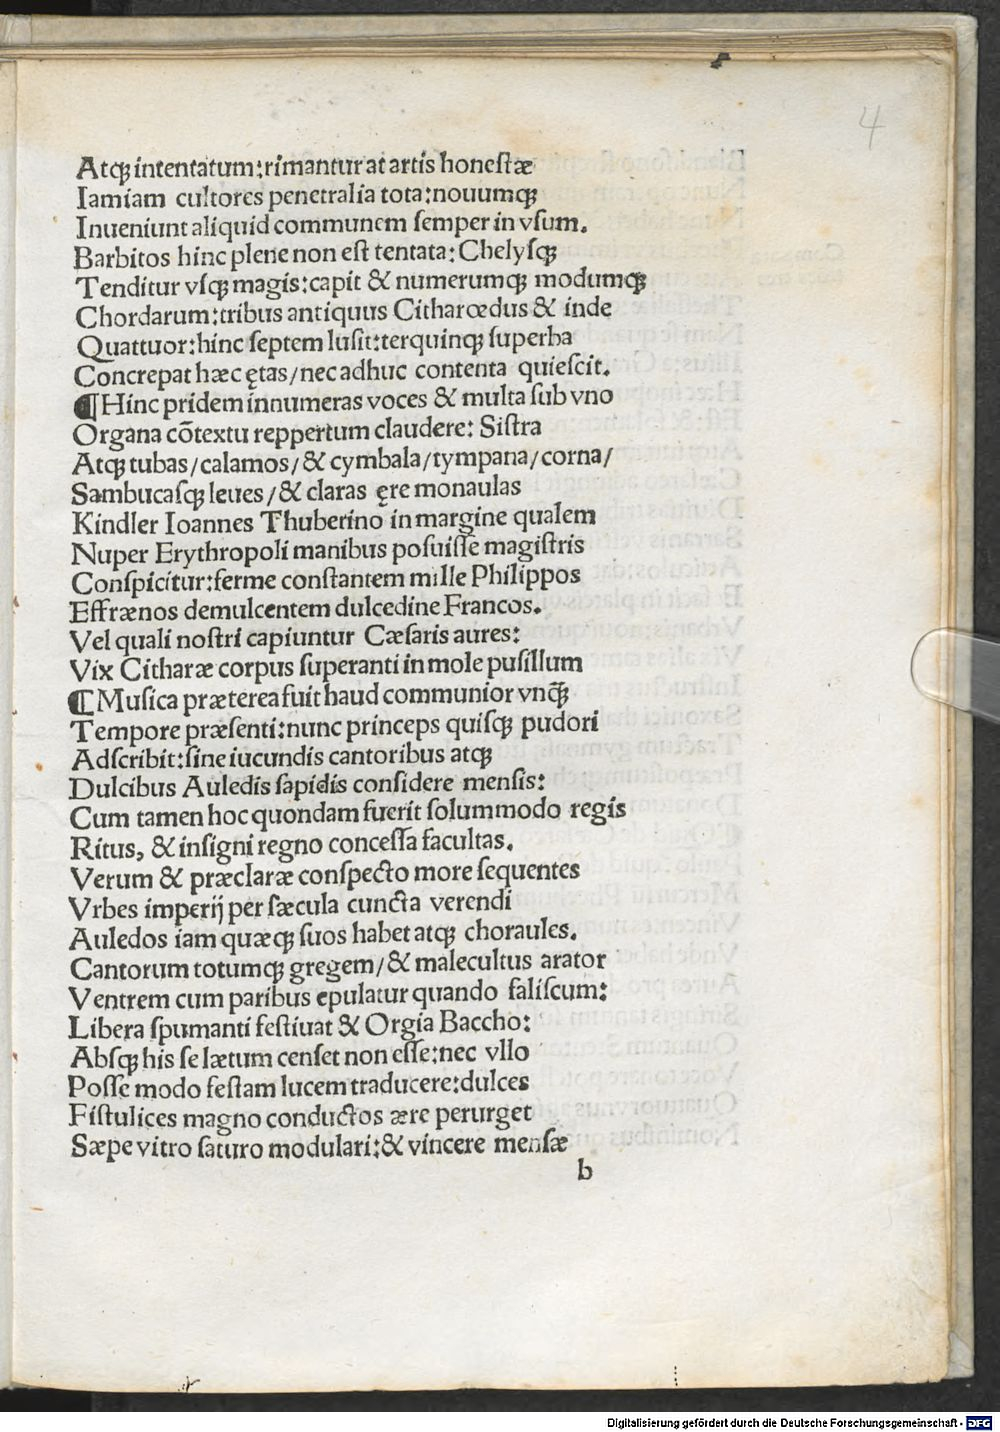 4
Atqꝫ intentatum: rimantur at artis honestæ
Iamiam cultores penetralia tota: nouumqꝫ
Inueniunt aliquid communem semper in vsum.
Barbitos hinc plene non est tentata: Chelysqꝫ
Tenditur vsqꝫ magis: capit & numerumqꝫ modumqꝫ
Chordarum: tribus antiquus Citharœdus & inde
Quattuor: hinc septem lusit: terquinqꝫ superba
Concrepat hæc ętas/ nec adhuc contenta quiescit.
¶ Hinc pridem innumeras voces & multa sub vno
Organa cōtextu reppertum claudere: Sistra
Atqꝫ tubas/ calamos/ & cymbala/ tympana/ corna/
Sambucasqꝫ leues/ & claras ęre monaulas
Kindler Ioannes Thuberino in margine qualem
Nuper Erythropoli manibus posuisse magistris
Conspicitur: ferme constantem mille Philippos
Effrænos demulcentem dulcedine Francos.
Vel quali nostri capiuntur Cæsaris aures:
Vix Citharæ corpus superanti in mole pusillum
¶ Musica præterea fuit haud communior vnꝗ̃
Tempore præsenti: nunc princeps quisqꝫ pudori
Adscribit: sine iucundis cantoribus atqꝫ
Dulcibus Auledis sapidis considere mensis:
Cum tamen hoc quondam fuerit solummodo regis
Ritus, & insigni regno concessa facultas.
Verum & præclaræ conspecto more sequentes
Vrbes imperij per sæcula cuncta verendi
Auledos iam quæqꝫ suos habet atqꝫ choraules.
Cantorum totumqꝫ gregem/ & malecultus arator
Ventrem cum paribus epulatur quando faliscum:
Libera spumanti festiuat & Orgia Baccho:
Absqꝫ his se lætum censet non esse: nec vllo
Posse modo festam lucem traducere: dulces
Fistulices magno conductos ære perurget
Sæpe vitro saturo modulari: & vincere mensæ
b
Digitalisierung gefördert durch die Deutsche Forschungsgemeinschaft - DFG